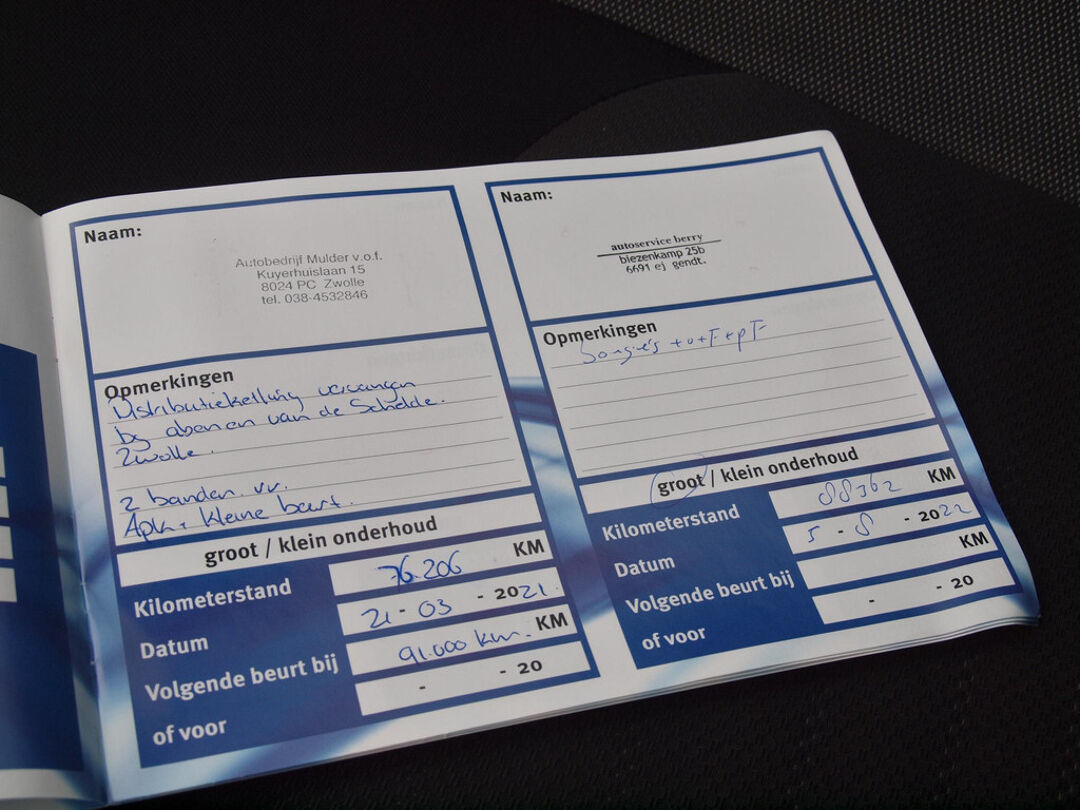 Naam:
Autobedrijf Mulder v.o.f.
Kuyerhuislaan 15
8024 PC Zwolle
tel. 038-4532846
Opmerkingen
Distributieketting vervangen
by abenen van de Schelde.
Zwolle.
2 banden. vv.
Apk + kleine beurt.
groot / klein onderhoud
Kilometerstand 76.206 KM
Datum 21 - 03 - 2021.
Volgende beurt bij 91.000 km. KM
of voor - - 20
Naam:
autoservice berry
biezenkamp 25b
6691 ej gendt.
Opmerkingen
groot / klein onderhoud
Kilometerstand 88362 KM
Datum 5 - 8 - 2022
Volgende beurt bij KM
of voor - - 20